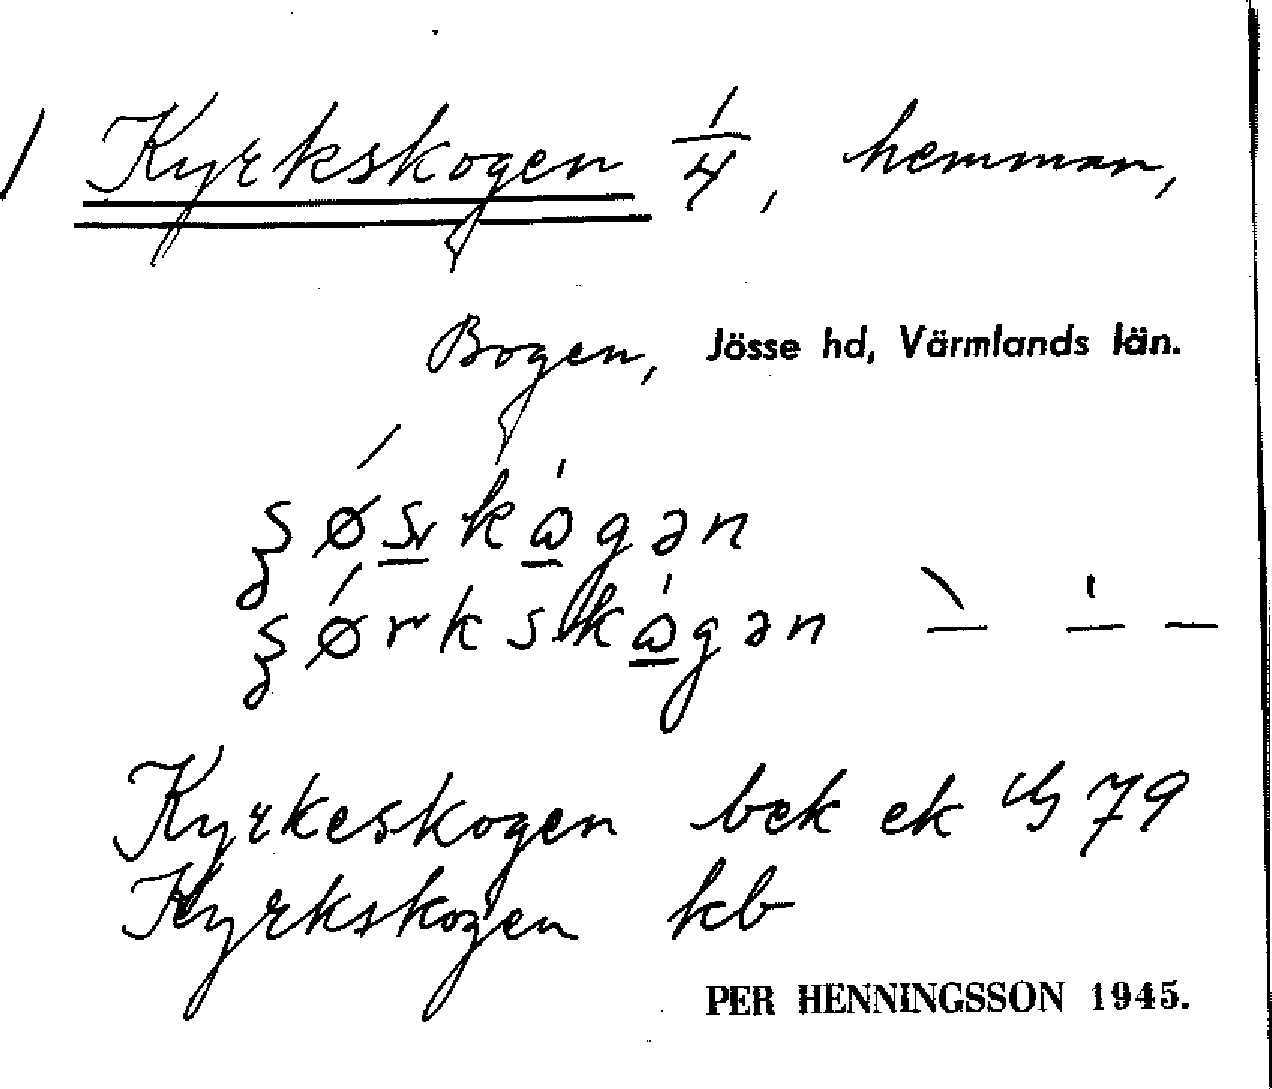 1 Kyrkskogen 1/4, hemman,
Bogen, Jösse hd, Värmlands län.
Kyrkeskogen bek ek 79
Kyrkskogen kb
PER HENNINGSSON 1945.